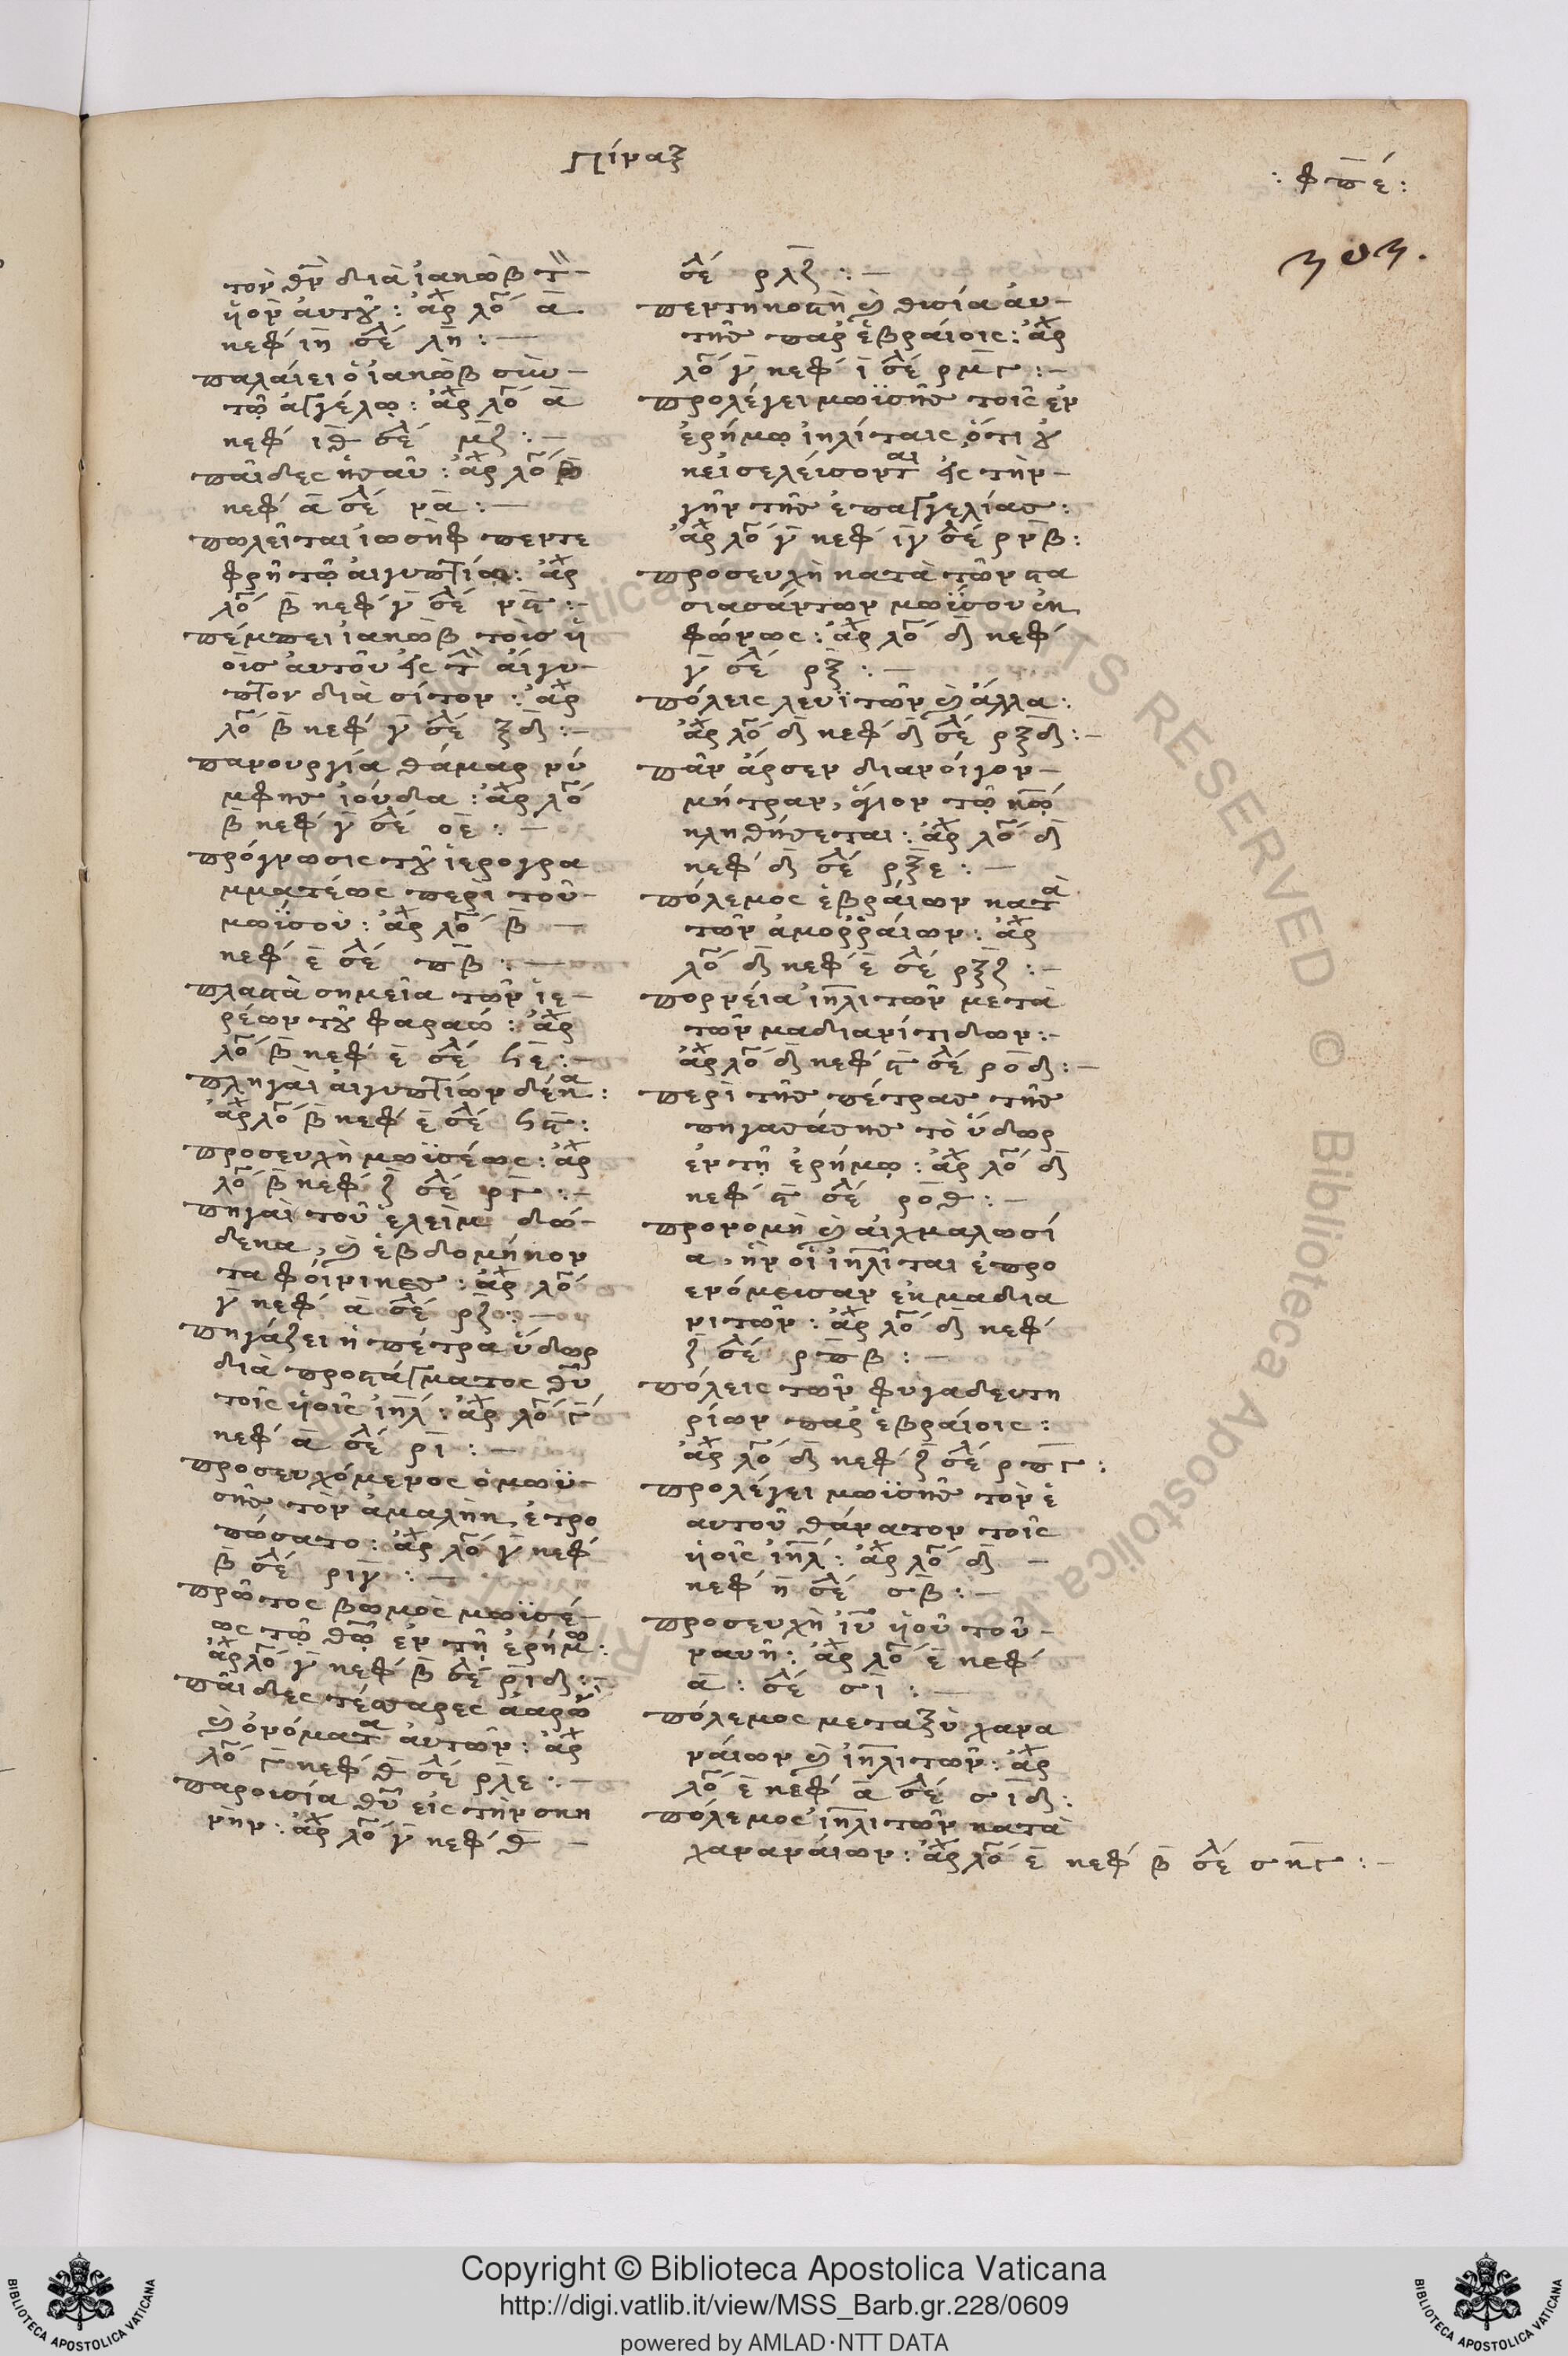 Πίναξ
: φπέ :
303.
τὸν θν̅ διὰ ἰακὼβ τ̅
ὑὸν ἀυτοῦ : ἀρχ λό α̅
κεφ ιη̅ σελ λη̅ : —
παλάιει ὁ ἰακὼβ σὺν
τῶ ἀγγέλω : ἀρχ λό α̅
κεφ ιθ̅ σελ μ̅ζ : —
πᾶιδες ἠσαῦ : ἀρχ λό β̅
κεφ α̅ σελ να̅ : —
πωλεῖται ἰωσὴφ πεντε
φρῆ τῶ ἀιγυπτίω : ἀρχ
λό β̅ κεφ γ̅ σελ νϛ̅ : —
πέμπει ἰακὼβ τοὶσ ὑ
οῖσ ἀυτοῦ εἰς τὴν ἀίγυ-
πτον διὰ σίτον : ἀρχ
λό β̅ κεφ γ̅ σελ ξδ̅ : —
πανουργία θάμαρ νύ
μφησ ἰούδα : ἀρχ λό
β̅ κεφ γ̅ σελ οε̅ : —
πρόγνωσις τοῦ ἱερογρα
μματέως περι τοῦ
μωϊσοὺ : ἀρχ λό β̅ —
κεφ ε̅ σελ πβ̅ : —
πλαστὰ σημεῖα τῶν ἱε-
ρέων τοῦ φαραώ : ἀρχ
λό β̅ κεφ ε̅ σελ ϟε̅ : —
πληγὰι ἀιγυπτίων δέκα :
ἀρχ λό β̅ κεφ ε̅ σελ ϟϛ̅ :
προσευχὴ μωϊσέως : ἀρχ
λό β̅ κεφ ζ̅ σελ ργ̅ : —
πηγὰι τοῦ ἐλεὶμ δώ-
δεκα, καὶ ἑβδομήκον
τα φοίνικεσ : ἀρχ λό
γ̅ κεφ α̅ σελ ρζ̅ : —
πηγάζει ἡ πέτρα ὕδωρ
διὰ προστάγματος θυ̅
τοῖς ὑοῖς ιηλ̅ : ἀρχ λό γ̅
κεφ α̅ σελ ρι̅ : —
προσευχόμενος ὁ μωϋ-
σῆσ τὸν ἀμαλὴκ ἐτρο
πώσατο : ἀρχ λό γ̅ κεφ
β̅ σελ ριγ̅ : —
πρῶτος βωμὸς μωϊσέ-
ως τῶ θω̅ ἐν τῆ ἐρήμω :
ἀρχ λό γ̅ κεφ β̅ σελ ριδ̅ : —
πᾶιδες τέσσαρες ἀαρὼν
καὶ ὀνόματα ἀυτῶν : ἀρχ
λό γ̅ κεφ θ̅ σελ ρλε̅ : —
παρουσία θυ̅ εἰς τὴν σκη
νὴν : ἀρχ λό γ̅ κεφ θ̅ —
σελ ρλζ̅ : —
πεντηκοστὴ καὶ θυσία ἀυ-
τῆσ παρ ἑβραίοις : ἀρχ
λό γ̅ κεφ ι̅ σελ ρμγ̅ : —
προλέγει μωϊσῆσ τοῖς ἐν
ἐρήμω ἰηλίταις, ὅτι οὐ
κεἰσελεύσονται εἰς τὴν
γῆν τῆσ ἐπαγγελίασ :
ἀρχ λό γ̅ κεφ ιγ̅ σελ ρνβ̅ :
προσευχὴ κατὰ τῶν στα
σιασάντων μωϊσου ἐκ
φώνως : ἀρχ λό δ̅ κεφ
γ̅ σελ ρξ̅ : —
πόλεις λευϊτῶν καὶ ἄλλα :
ἀρχ λό δ̅ κεφ δ̅ σελ ρξδ̅ : —
πᾶν ἄρσεν διανοίγον
μήτραν, ἅγιον τῶ κω̅
κληθήσεται : ἀρχ λό δ̅
κεφ δ̅ σελ ρξε̅ : —
πόλεμος ἑβράιων κατὰ
τῶν ἀμοῤῥάιων : ἀρχ
λό δ̅ κεφ ε̅ σελ ρξζ̅ : —
πορνέια ἰηλιτῶν μετὰ
τῶν μαδιανίτιδων : —
ἀρχ λό δ̅ κεφ ϛ̅ σελ ροδ̅ : —
περὶ τῆσ πέτρασ τῆσ
πηγασάσησ τὸ ὕδωρ
ἐν τῆ ἐρήμω : ἀρχ λό δ̅
κεφ ϛ̅ σελ ροθ̅ : —
προνομὴ καὶ ἀιχμαλωσί
α, ἣν οἱ ἰηλῖται ἐπρο
ενόμευσαν ἐκ μαδια
νιτῶν : ἀρχ λό δ̅ κεφ
ζ̅ σελ ρπβ̅ : —
πόλεις τῶν φυγαδευτη
ρίων παρ ἑβραίοις :
ἀρχ λό δ̅ κεφ ζ̅ σελ ρπγ̅ :
προλέγει μωϊσῆσ τὸν ἑ
αυτοῦ θάνατον τοῖς
ὑοῖς ιηλ̅ : ἀρχ λό δ̅ —
κεφ η̅ σελ σβ̅ : —
προσευχὴ ιυ̅ ὑοῦ τοῦ
ναυῆ : ἀρχ λό ε̅ κεφ
α̅ : σελ σι̅ : —
πόλεμος μεταξὺ χανα
νάιων καὶ ἰηλιτῶν : ἀρχ
λό ε̅ κεφ α̅ σελ σιδ̅ :
πόλεμος ἰηλιτῶν κατὰ
χανανάιων : ἀρχ λό ε̅ κεφ β̅ σελ σκγ̅ : —
Copyright © Biblioteca Apostolica Vaticana
http://digi.vatlib.it/view/MSS_Barb.gr.228/0609
powered by AMLAD·NTT DATA